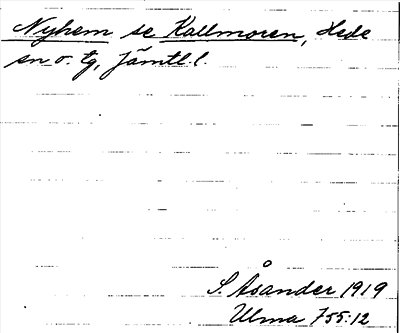 Nyhem se Kallmoren, Hede
sn o. tg, Jämtl. l.
S. Åsander 1919
Ulma 755:12